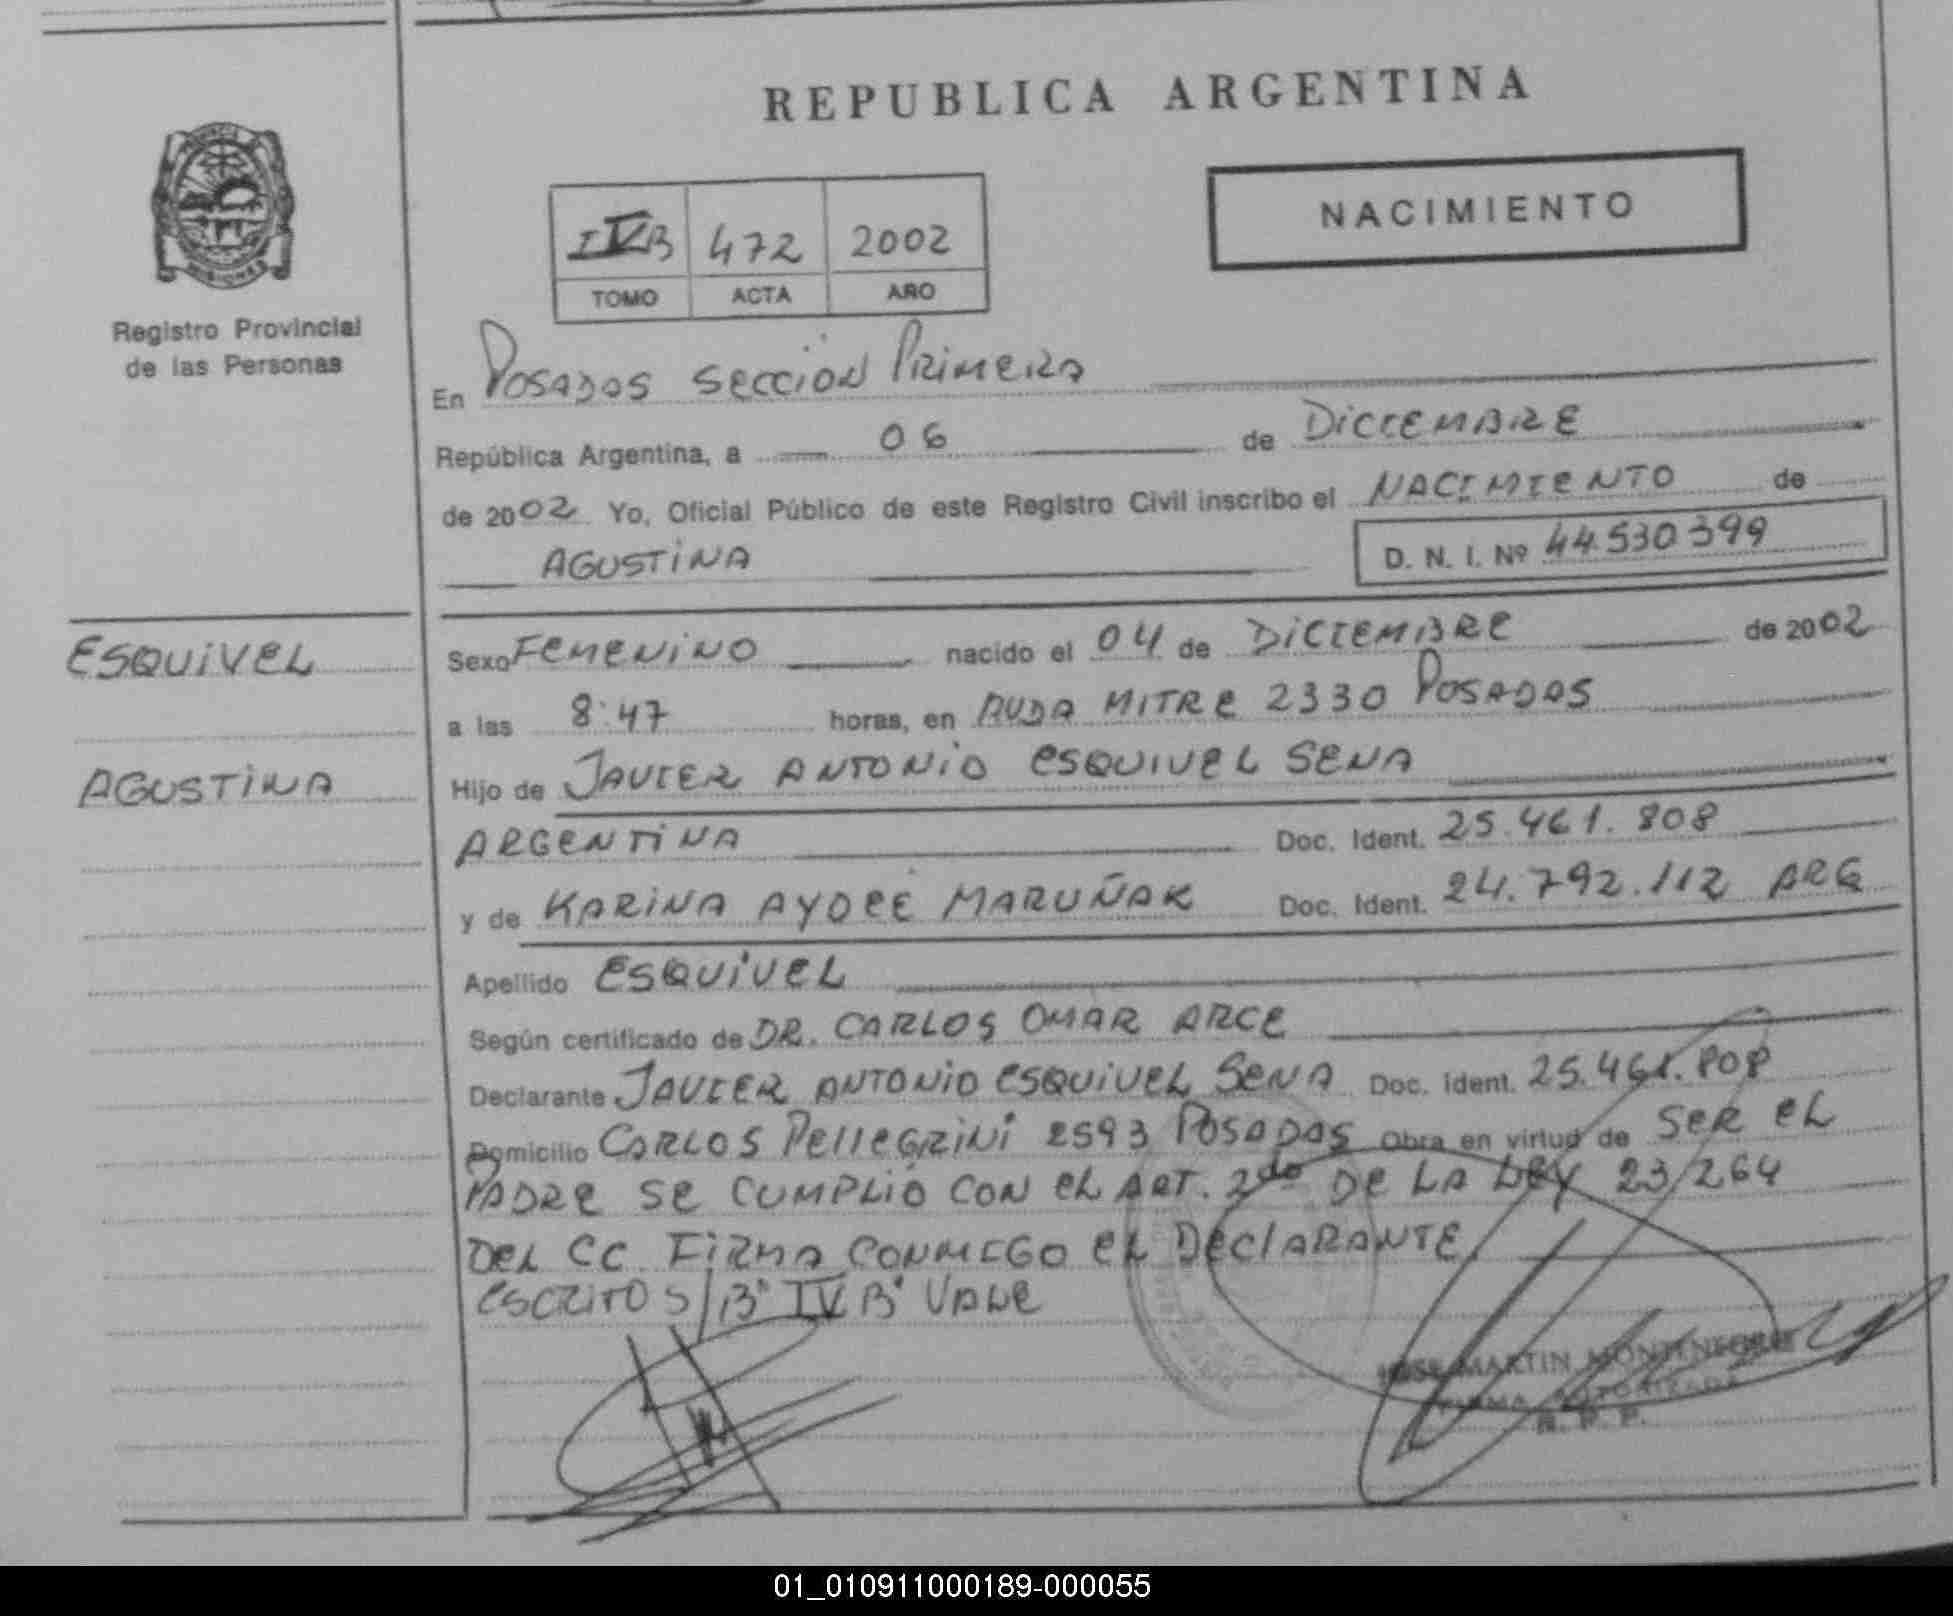 REPUBLICA ARGENTINA
NACIMIENTO
IVB 472 2002
TOMO ACTA AÑO
Registro Provincial
de las Personas
En POSADAS SECCION PRIMERA
República Argentina, a 06 de DICIEMBRE
de 2002 Yo, Oficial Público de este Registro Civil inscribo el NACIMIENTO de
AGUSTINA D. N. I. Nº 44.530399
ESQUIVEL
AGUSTINA
Sexo FEMENINO nacido el 04 de DICIEMBRE de 2002
a las 8:47 horas, en AVDA MITRE 2330 POSADAS
Hijo de JAVIER ANTONIO ESQUIVEL SENA
ARGENTINA Doc. Ident. 25.461.808
y de KARINA AYDEÉ MARUÑAK Doc. Ident. 24.792.112 ARG
Apellido ESQUIVEL
Según certificado de DR. CARLOS OMAR ARCE
Declarante JAVIER ANTONIO ESQUIVEL SENA Doc. Ident. 25.461.808
Domicilio CARLOS PELLEGRINI 2593 POSADAS Obra en virtud de SER EL
PADRE SE CUMPLIÓ CON EL ART. 2do DE LA LEY 23/264
DEL CC. FIRMA CONMIGO EL DECLARANTE
ESCRITO S/Bº IV Bº VALE
JOSE MARTIN MONTENEGRO
FIRMA AUTORIZADA
R. P. P.
01_010911000189-000055